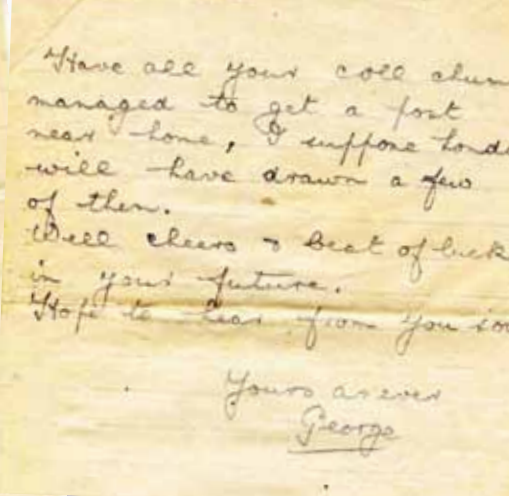 Have all your coll chum
managed to get a post
near home, I suppose Lond
will have drawn a few
of them.
Well cheers & best of luck
in your future.
Hope to hear from you soo
Yours as ever
George